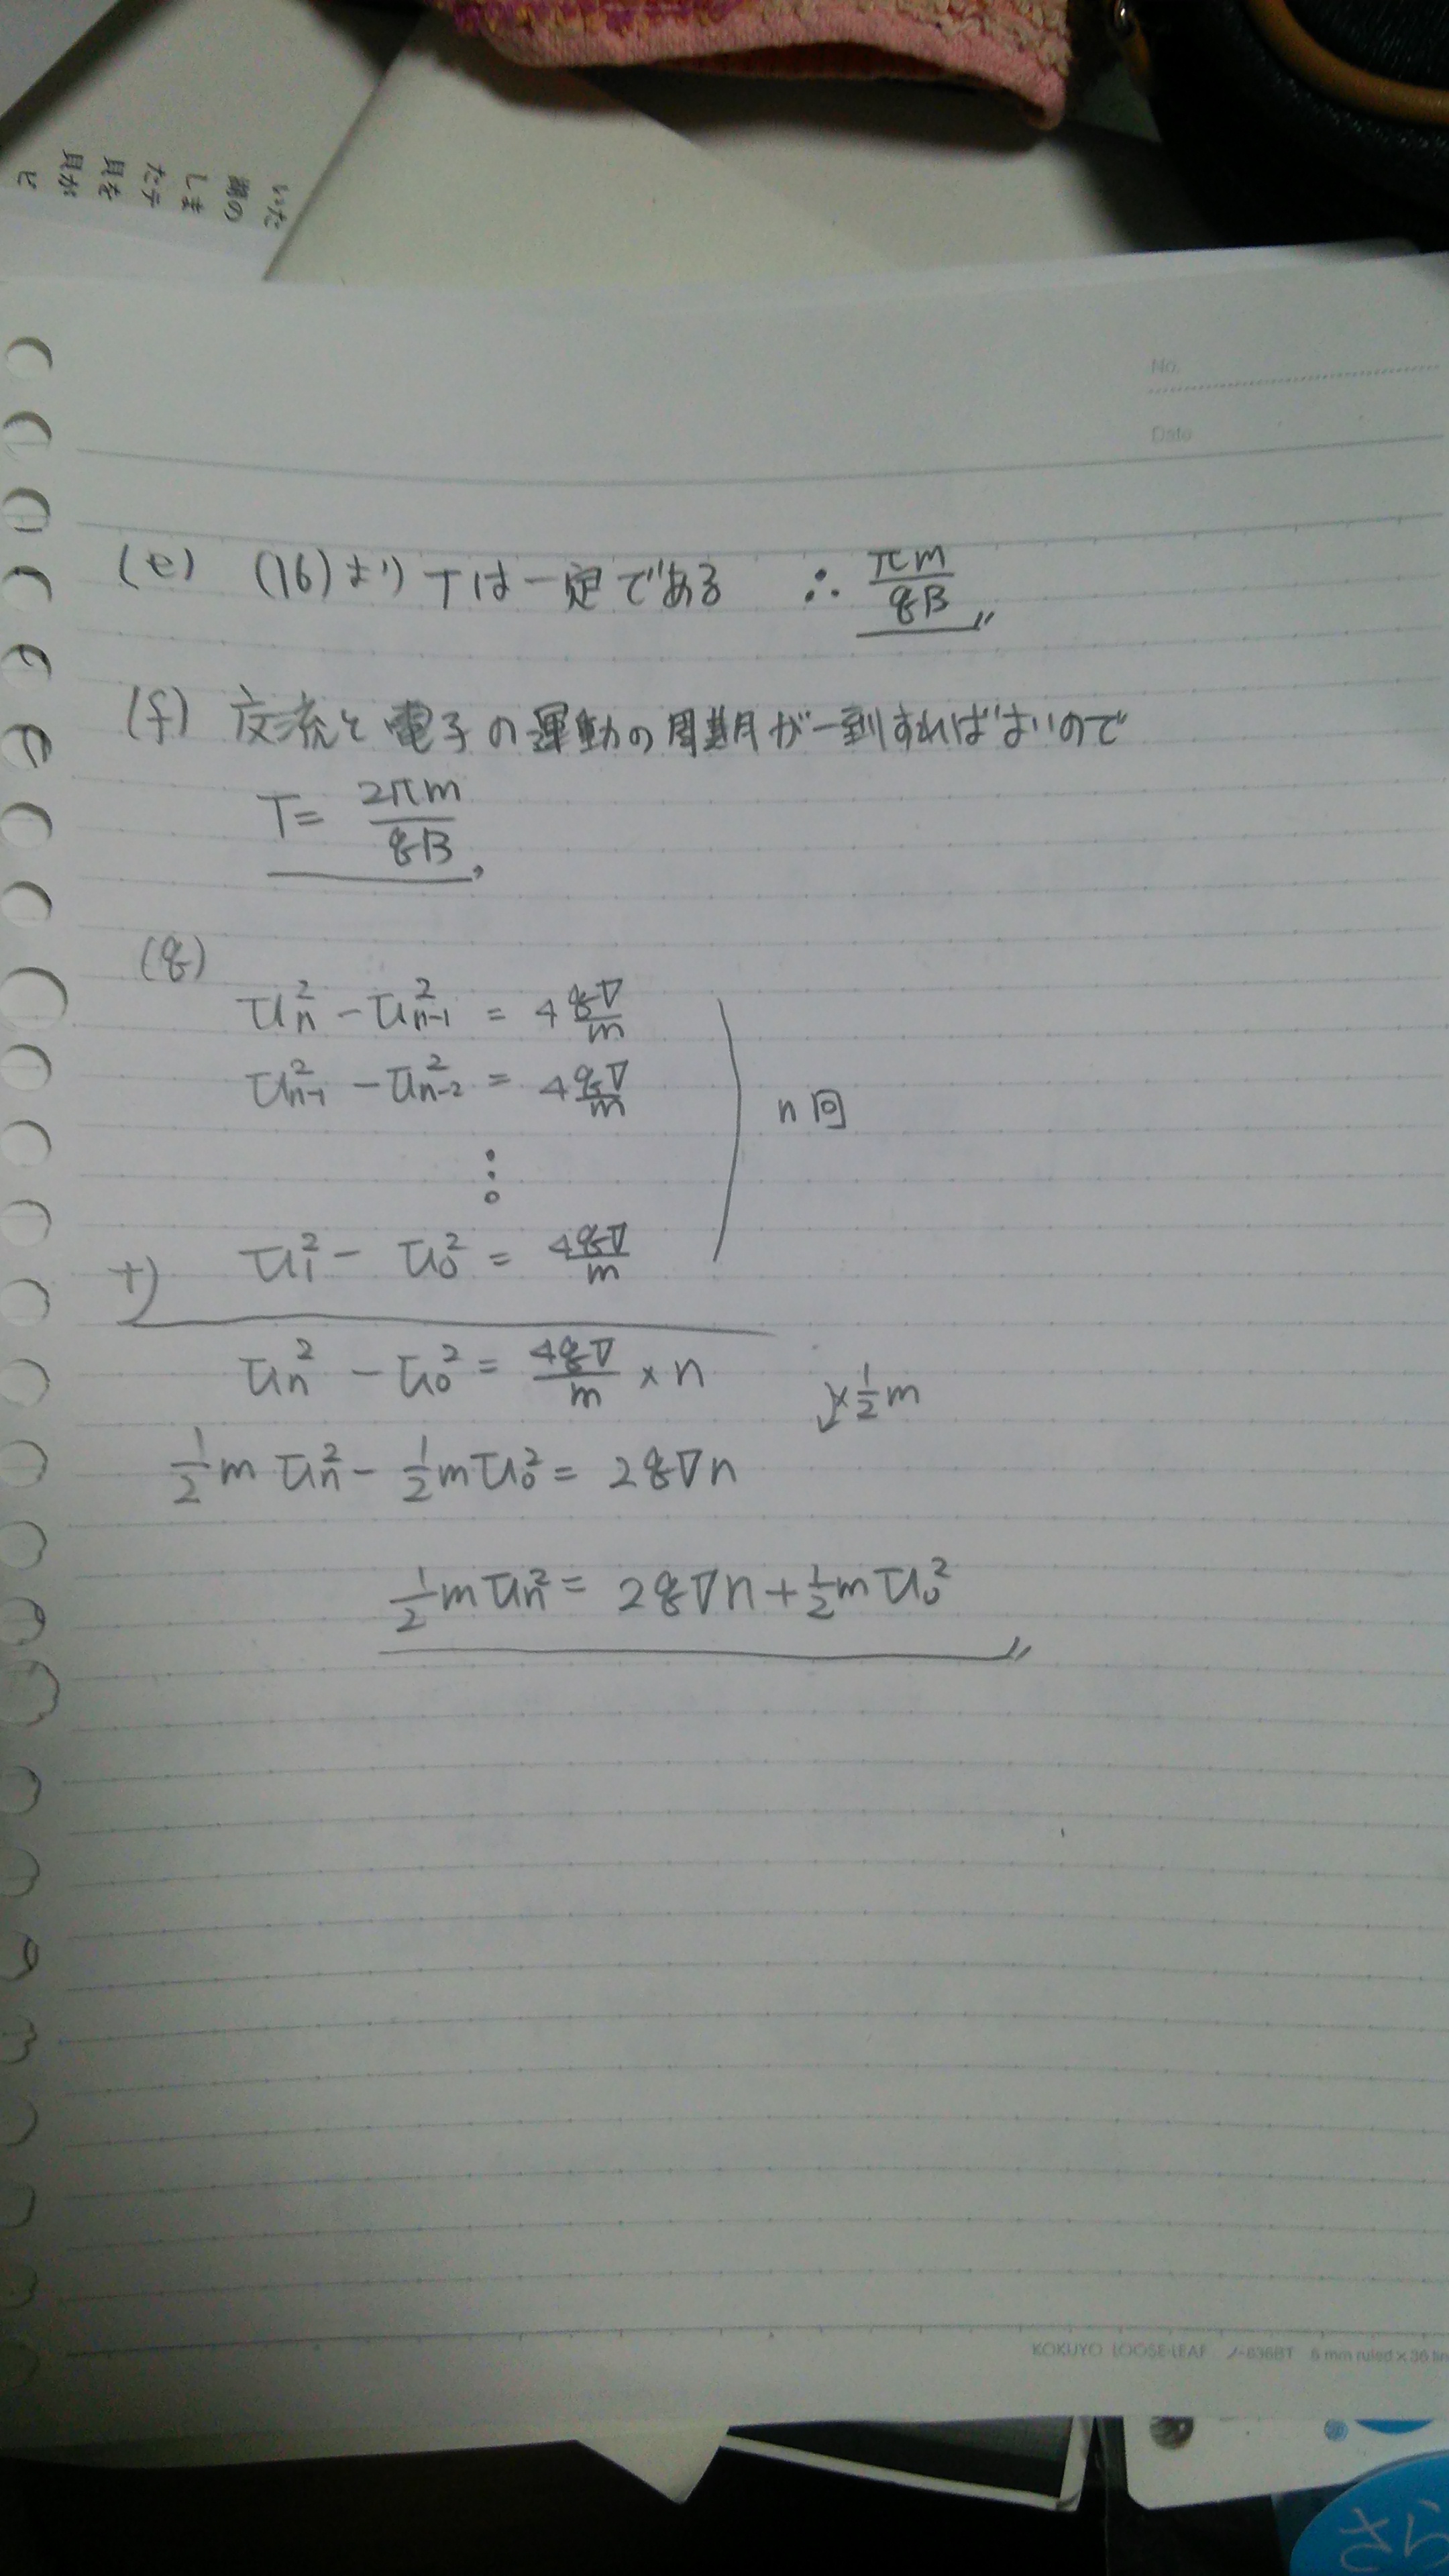 いた
類の
しま
たテ
員を
員が
ど
No.
Date
(e) (16)より Tは一定である ∴ πm/qB
(f) 交流と電子の運動の周期が一致すればよいので
T = 2πm/qB
(g)
v_n^2 - v_{n-1}^2 = 4 qV/m
v_{n-1}^2 - v_{n-2}^2 = 4 qV/m
n回
⋮
+) v_1^2 - v_0^2 = 4qV/m
v_n^2 - v_0^2 = 4qV/m × n
↓×1/2 m
1/2 m v_n^2 - 1/2 m v_0^2 = 2qVn
1/2 m v_n^2 = 2qVn + 1/2 m v_0^2
KOKUYO LOOSE-LEAF ノ-836BT 6 mm ruled × 36 lin
さら